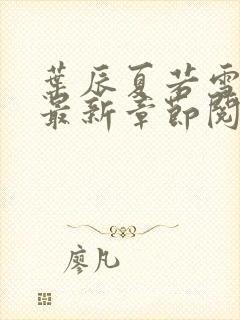 葉辰夏若雪
最新章節閱
廖凡